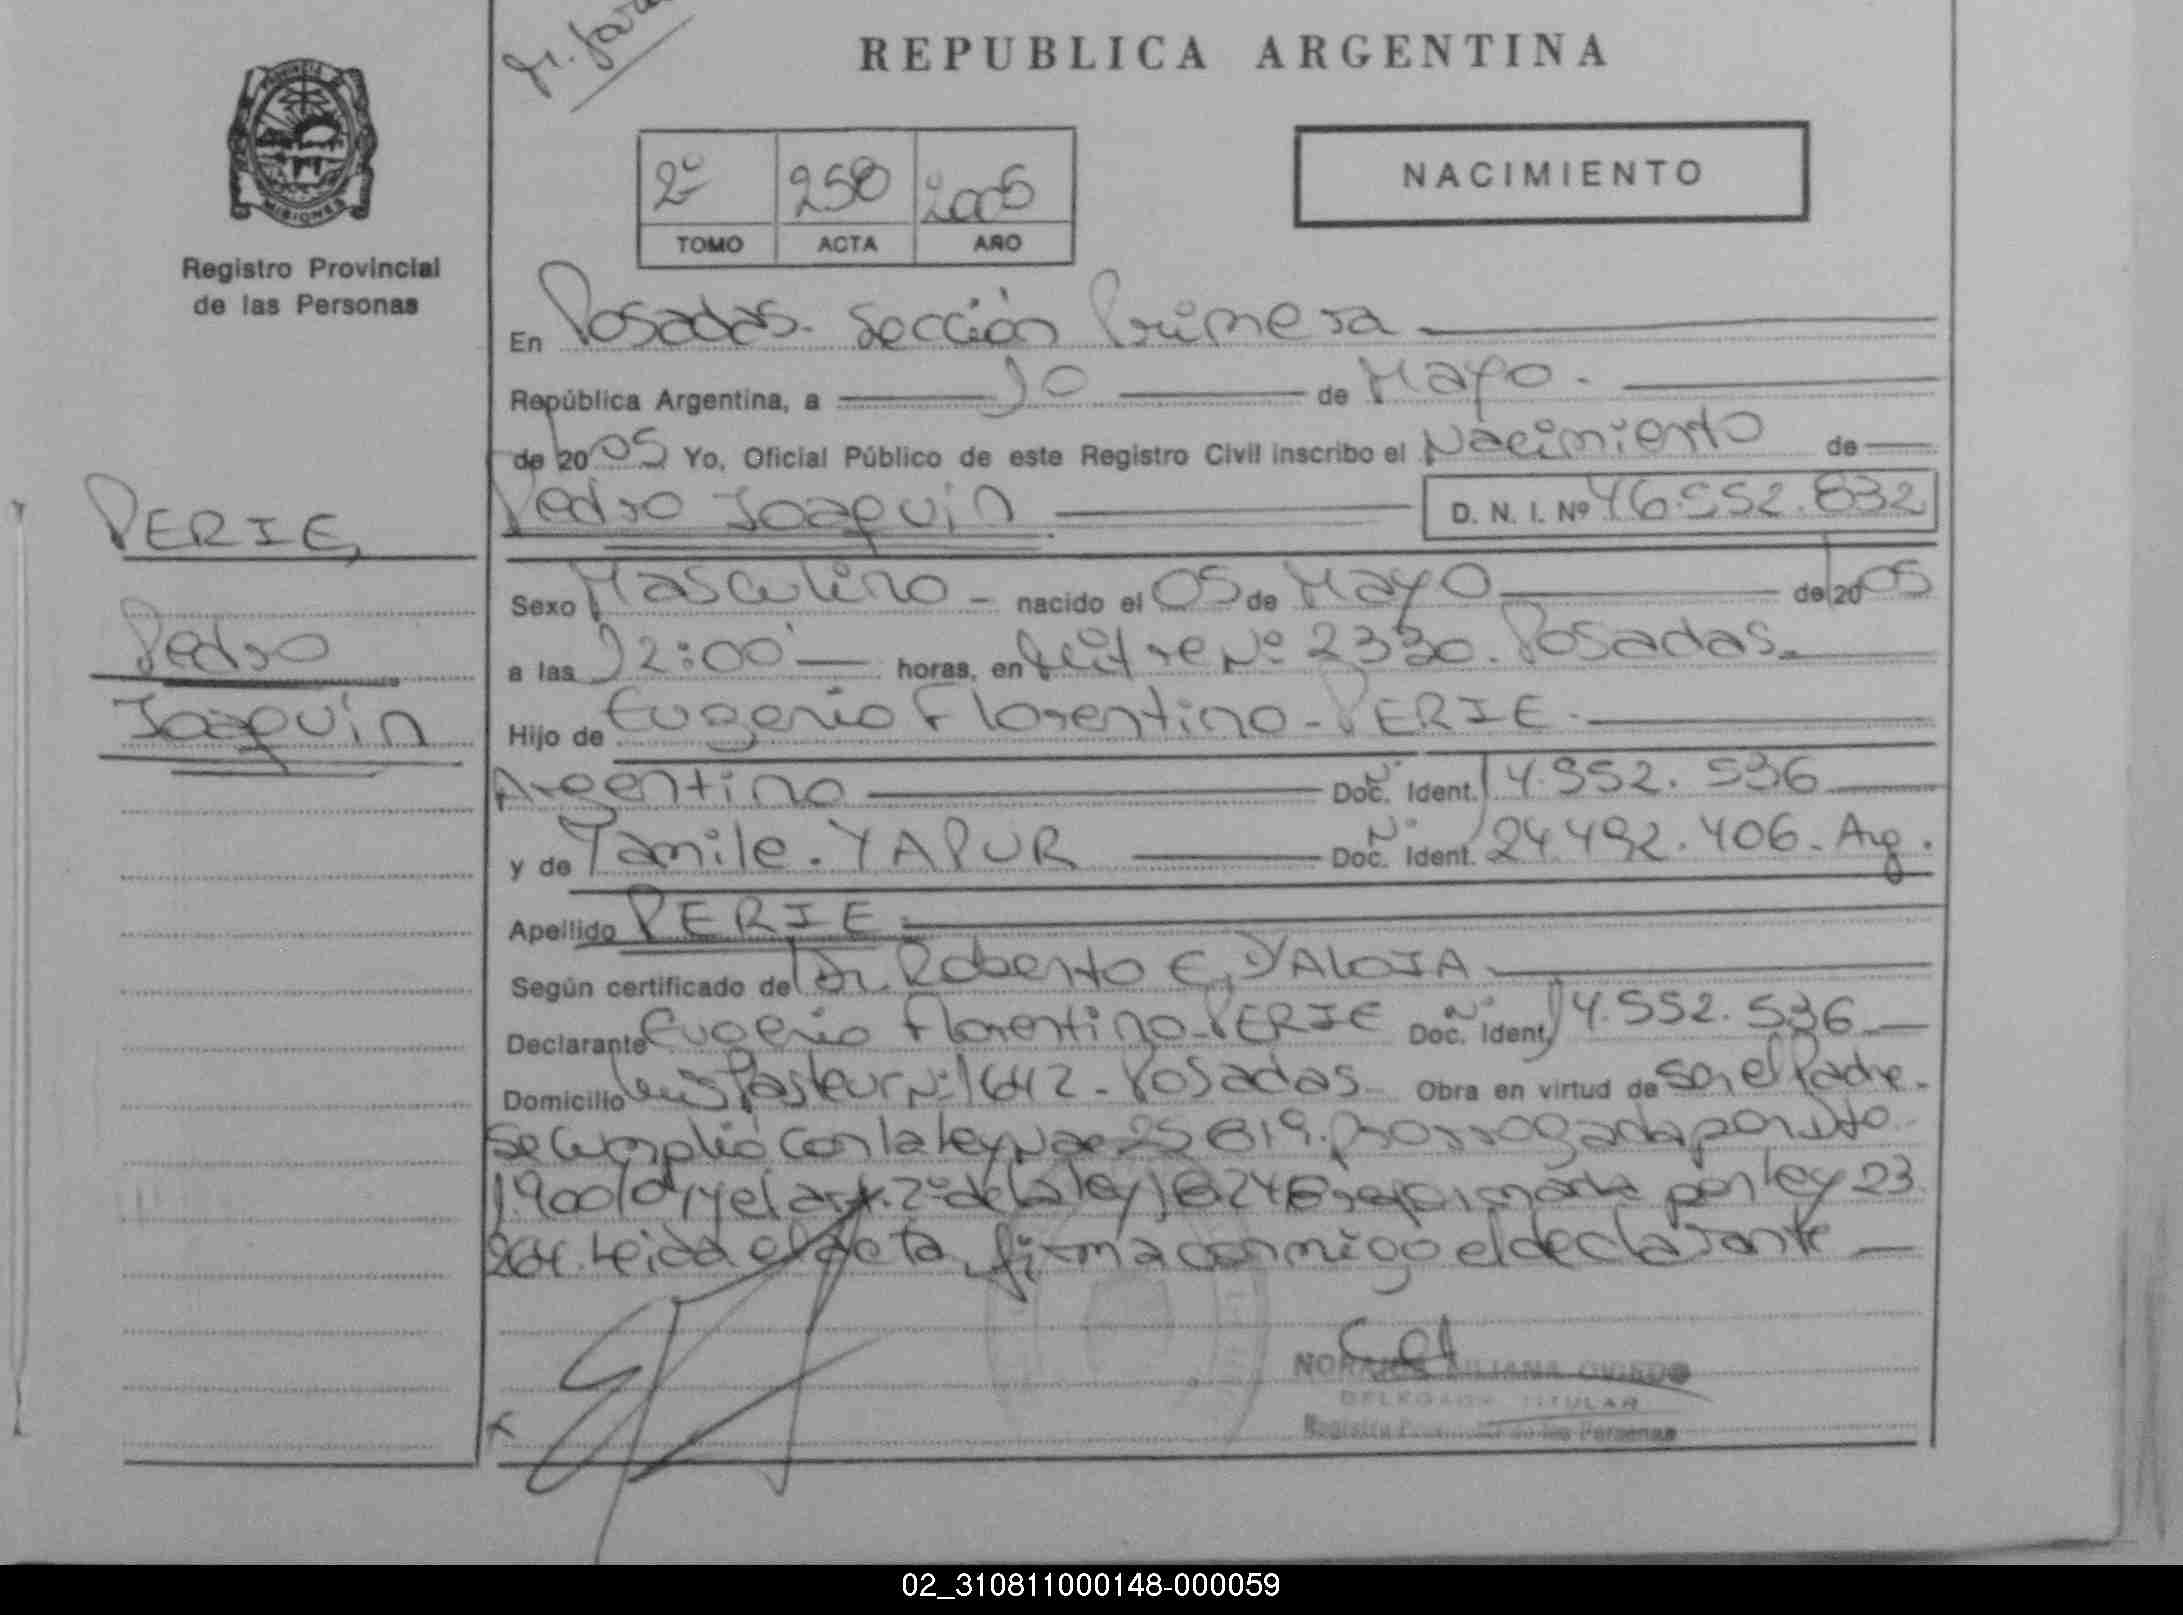 REPUBLICA ARGENTINA
PROVINCIA
MISIONES
Registro Provincial
de las Personas
2º 258 2005
TOMO ACTA AÑO
NACIMIENTO
En Posadas. Sección Primera
República Argentina, a 10 de Mayo.
de 2005 Yo, Oficial Público de este Registro Civil inscribo el Nacimiento de
PERIE,
Pedro
Joaquín
Pedro Joaquín D. N. I. Nº 46.552.832
Sexo Masculino - nacido el 05 de Mayo de 2005
a las 12:00 horas, en Mitre Nº 2330. Posadas.
Hijo de Eugenio Florentino - PERIE.
Argentino Doc. Ident. Nº 14.552.536
y de Yamile. YAPUR Doc. Ident. Nº 24.492.406. Arg.
Apellido PERIE.
Según certificado de Dr. Roberto E. D'ALOIA
Declarante Eugenio Florentino - PERIE Doc. Ident. Nº 14.552.536
Domicilio Luis Pasteur Nº 1642 - Posadas. Obra en virtud de ser el Padre.
Se cumplió con la ley Nac 25819. prorrogada por Dto
1.900/04 y el art. 2º de la ley 18248 reformada por ley 23
264. Leida el acta, firma conmigo el declarante
LILIANA OVIEDO
TITULAR
de las Personas
02_310811000148-000059